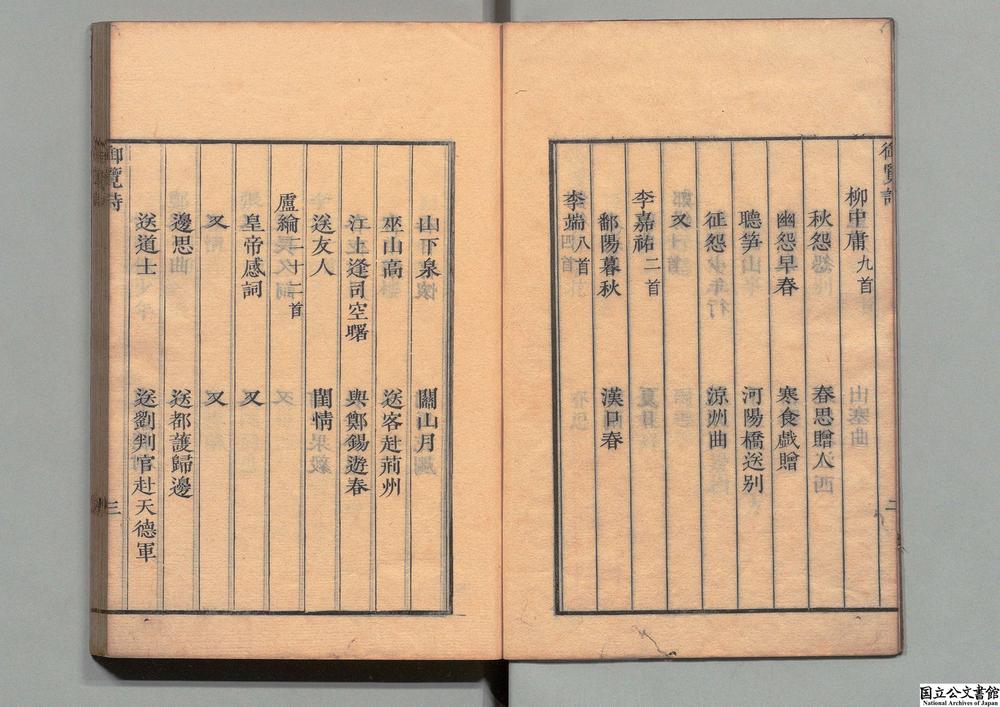 御覽詩
柳中庸九首
秋怨 春思贈人
幽怨早春 寒食戲贈
聽箏 河陽橋送别
征怨 涼州曲
又
李嘉祐二首
鄱陽暮秋 漢口春
李端八首
二
山下泉 關山月
巫山高 送客赴荊州
江上逢司空曙 與鄭錫遊春
送友人 閨情
盧綸三十二首
皇帝感詞 又
又 又
邊思 送都護歸邊
送道士 送劉判官赴天德軍
御覽詩
三
国立公文書館
National Archives of Japan